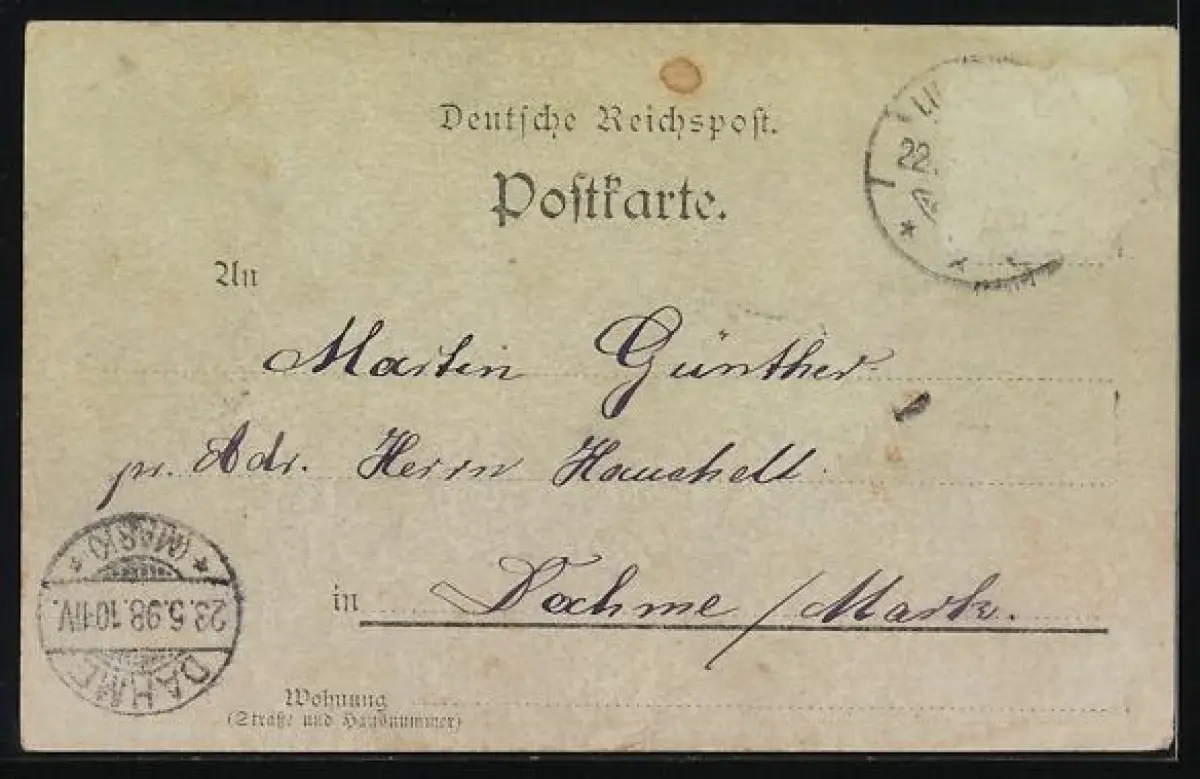 Deutsche Reichspost.
Postkarte.
22.
An
Martin Günther
pr. Adr. Herrn Hauchelt
in Dahme / Mark.
DAHME
23.5.98.10-11V.
* (MARK) *
Wohnung
(Straße und Hausnummer)